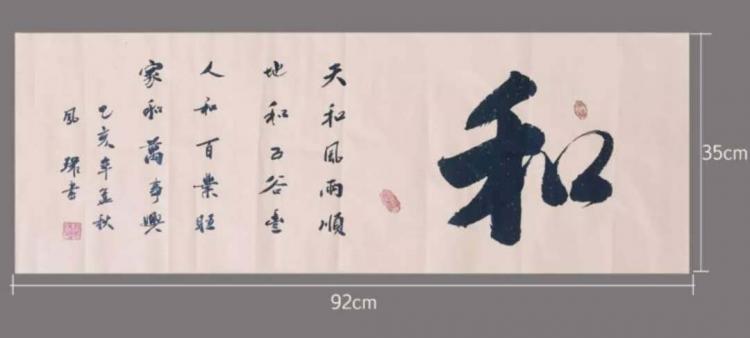 和
天和風雨順
地和五谷豊
人和百業旺
家和萬事興
己亥年孟秋
書
35cm
92cm